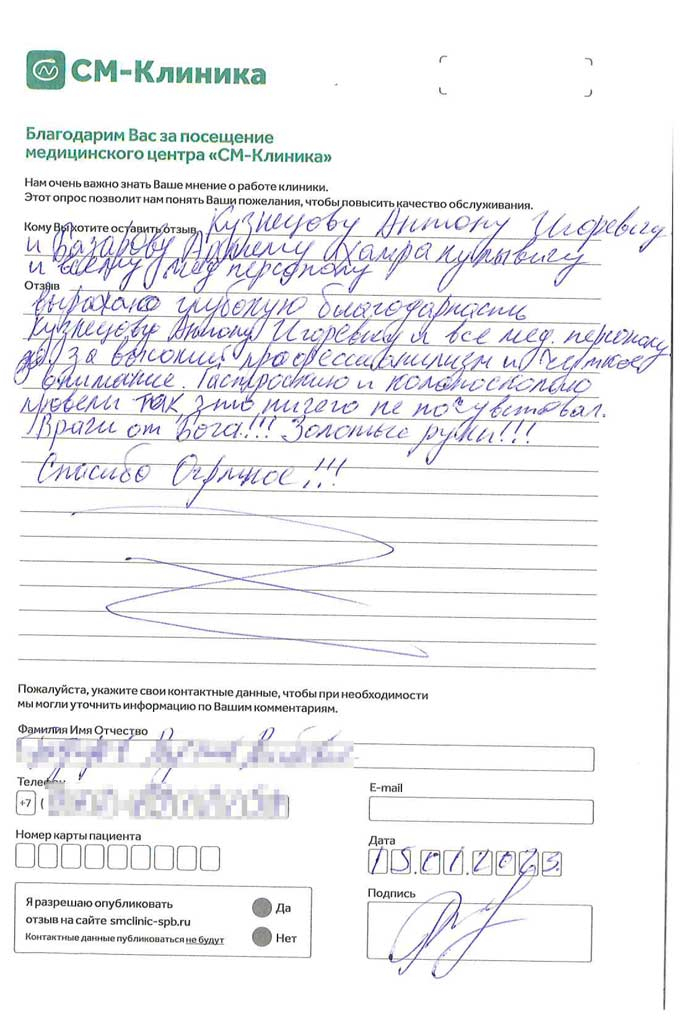 СМ-Клиника
Благодарим Вас за посещение
медицинского центра «СМ-Клиника»
Нам очень важно знать Ваше мнение о работе клиники.
Этот опрос позволит нам понять Ваши пожелания, чтобы повысить качество обслуживания.
Кому Вы хотите оставить отзыв Кузнецову Антону Игоревичу
и Базарову
и всему мед персоналу
Отзыв
выражаю глубокую благодарность
Кузнецову Антону Игоревичу и все мед. персоналу
за высокий профессионализм и чёткое
внимание. Гастроскопию и колоноскопию
провели так это ничего не почувствовал.
Врачи от Бога!!! Золотые руки!!!
Спасибо Огромное!!!
Пожалуйста, укажите свои контактные данные, чтобы при необходимости
мы могли уточнить информацию по Вашим комментариям.
Фамилия Имя Отчество
Телефон
+7 (
E-mail
Номер карты пациента
Дата
15.01.2023.
Подпись
Я разрешаю опубликовать
отзыв на сайте smclinic-spb.ru
Контактные данные публиковаться не будут
Да
Нет